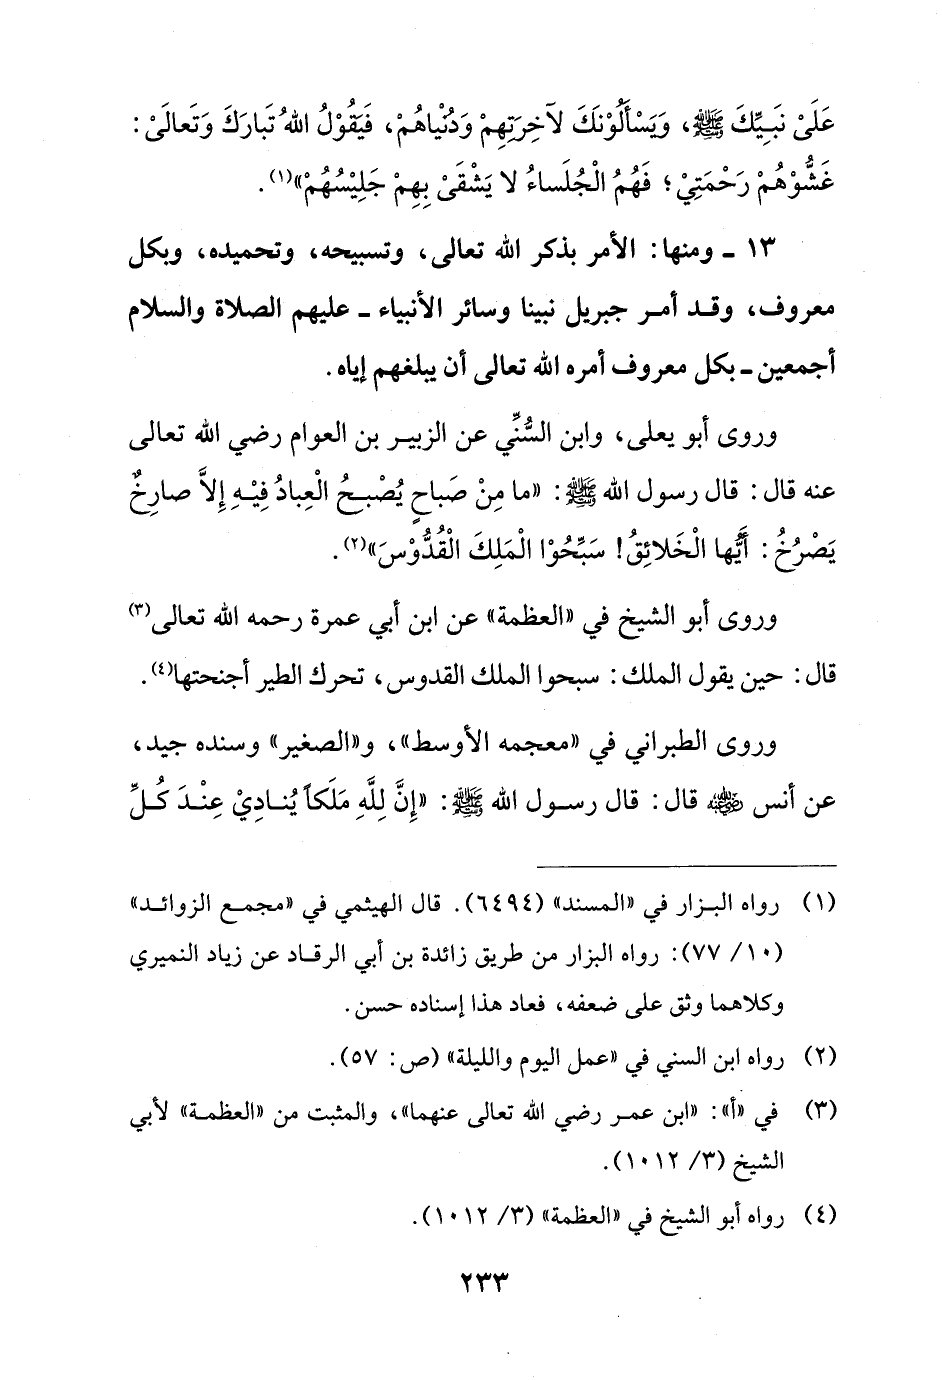 عَلَىْ نَبِيِّكَ ﷺ، وَيَسْأَلُوْنَكَ لآخِرَتِهِمْ وَدُنْياهُمْ، فَيَقُوْلُ اللهُ تَبارَكَ وَتَعالَىْ:
غَشُّوْهُمْ رَحْمَتِيْ؛ فَهُمُ الْجُلَساءُ لا يَشْقَىْ بِهِمْ جَلِيْسُهُمْ»(١).
١٣ ـ ومنها: الأمر بذكر الله تعالى، وتسبيحه، وتحميده، وبكل
معروف، وقد أمر جبريل نبينا وسائر الأنبياء ـ عليهم الصلاة والسلام
أجمعين ـ بكل معروف أمره الله تعالى أن يبلغهم إياه.
وروى أبو يعلى، وابن السُّنِّي عن الزبير بن العوام رضي الله تعالى
عنه قال: قال رسول الله ﷺ: «ما مِنْ صَباحٍ يُصْبِحُ الْعِبادُ فِيْهِ إِلاَّ صارِخٌ
يَصْرُخُ: أَيُّها الْخَلائِقُ! سَبِّحُوْا الْمَلِكَ الْقُدُّوْسَ»(٢).
وروى أبو الشيخ في «العظمة» عن ابن أبي عمرة رحمه الله تعالى(٣)
قال: حين يقول الملك: سبحوا الملك القدوس، تحرك الطير أجنحتها(٤).
وروى الطبراني في «معجمه الأوسط»، و«الصغير» وسنده جيد،
عن أنس رضي الله عنه قال: قال رسول الله ﷺ: «إِنَّ لِلَّهِ مَلَكاً يُنادِيْ عِنْدَ كُلِّ
(١) رواه البزار في «المسند» (٦٤٩٤). قال الهيثمي في «مجمع الزوائد»
(١٠/ ٧٧): رواه البزار من طريق زائدة بن أبي الرقاد عن زياد النميري
وكلاهما وثق على ضعفه، فعاد هذا إسناده حسن.
(٢) رواه ابن السني في «عمل اليوم والليلة» (ص: ٥٧).
(٣) في «أ»: «ابن عمر رضي الله تعالى عنهما»، والمثبت من «العظمة» لأبي
الشيخ (٣/ ١٠١٢).
(٤) رواه أبو الشيخ في «العظمة» (٣/ ١٠١٢).
٢٣٣